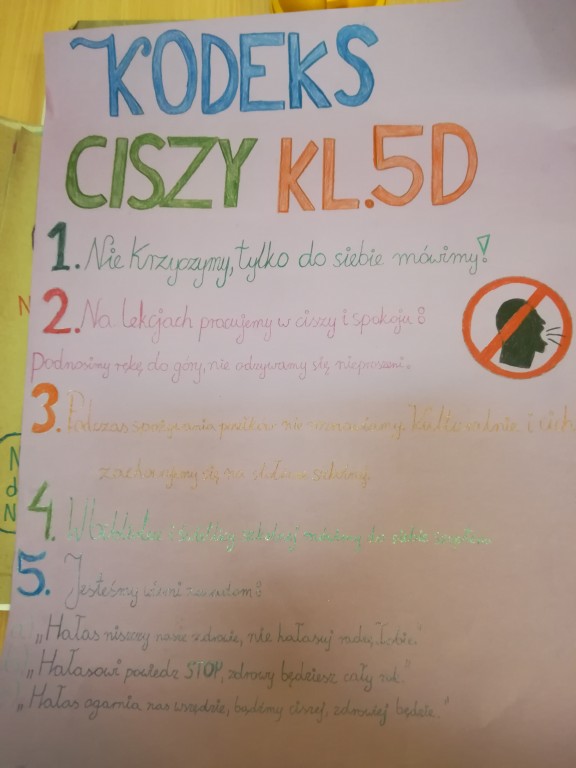 KODEKS
CISZY KL.5D
1. Nie krzyczymy, tylko do siebie mówimy!
2. Na lekcjach pracujemy w ciszy i spokoju:
podnosimy rękę do góry, nie odzywamy się nieproszeni.
3. Podczas spożywania posiłków nie rozmawiamy. Kulturalnie i
zachowujemy się na stołówce szkolnej.
4. W bibliotece i świetlicy szkolnej mówimy do siebie szeptem.
5. Jesteśmy wierni zasadom:
„Hałas niszczy nasze zdrowie, nie hałasuj radzę Tobie."
„Hałasowi powiedz STOP, zdrowy będziesz cały rok."
„Hałas ogarnia nas wszędzie, bądźmy ciszej, zdrowiej będzie."
N
N
d
N